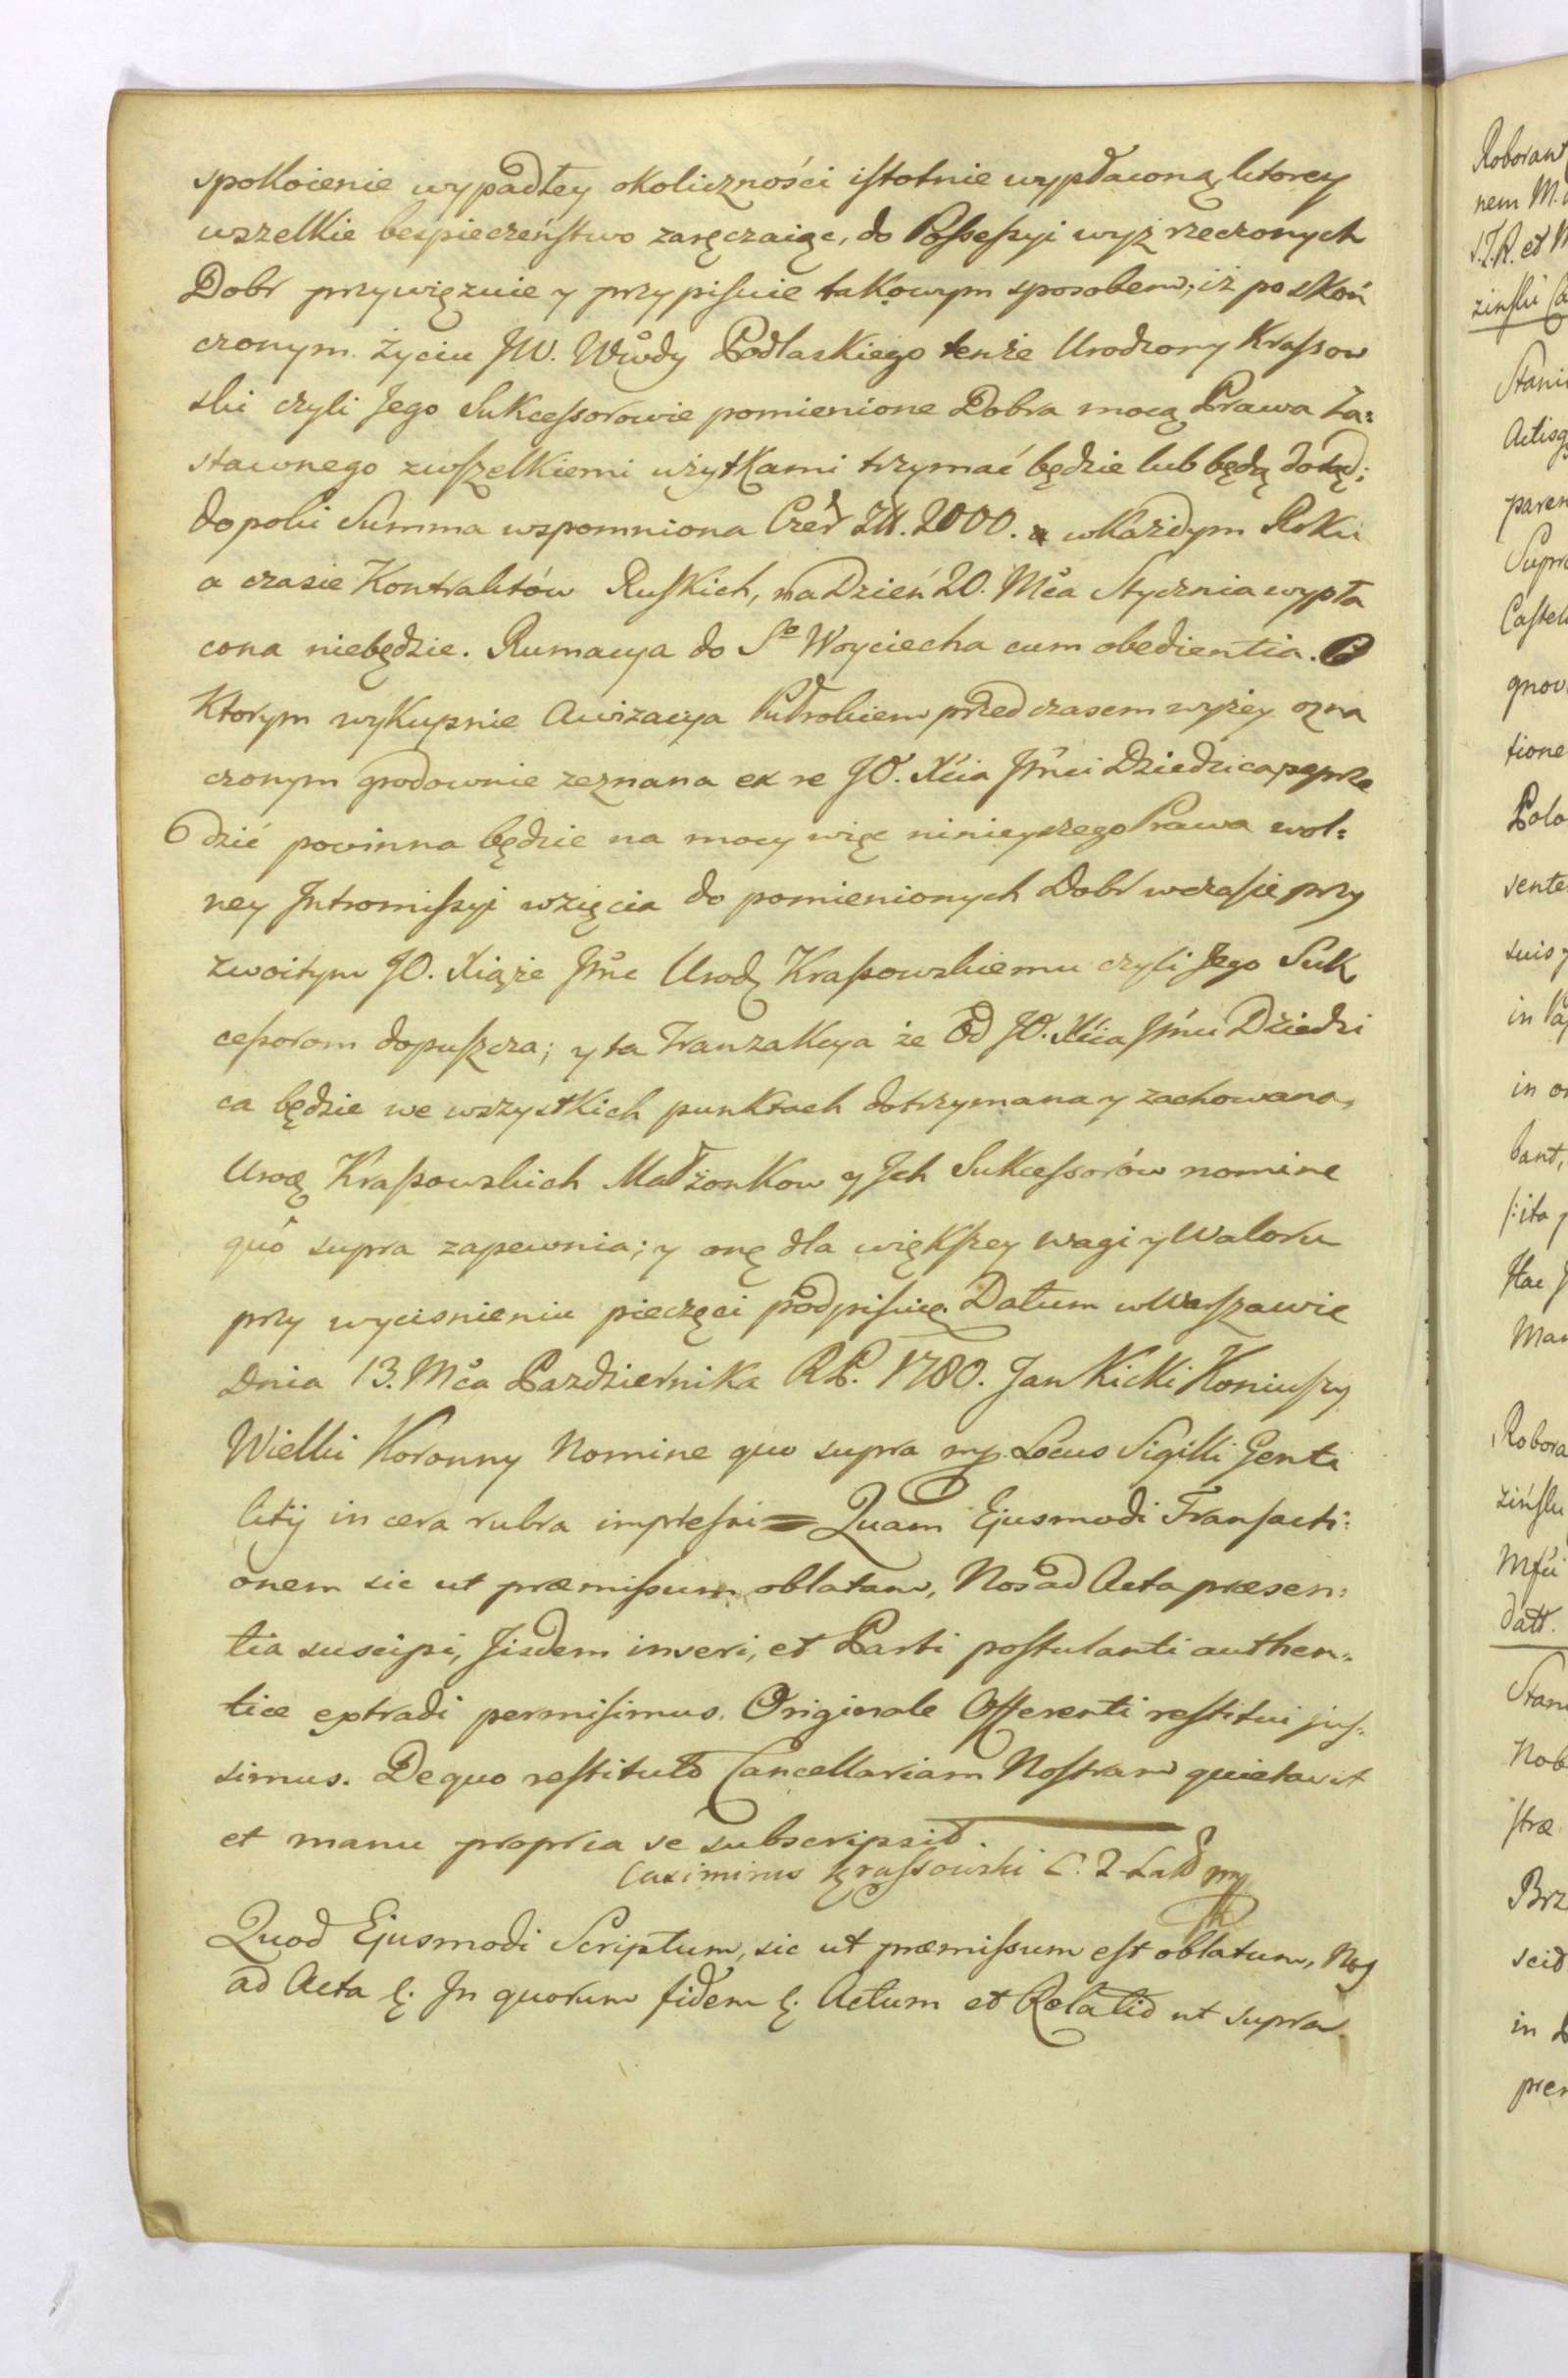 spokoienie wypadłey okoliczności istotnie wypłaconą, ktorey
wszelkie bespieczeństwo zaręczaiąc, do Possessyi wyż rzeczonych
Dobr przywięzuie y przypisuie takowym sposobem, iż po skoń
czonym życiu JW. Wdy Podlaskiego tenże Urodzony Krassow
ski czyli Jego Sukcessorowie pomienione Dobra mocą Prawa Za=
stawnego zwszelkiemi użytkami trzymać będzie lub będą dotąd;
dopoki Summa wspomniona Czer Zł. 2000. w każdym Roku
a czasie Kontraktów Ruskich, na Dzień 20. Mca Stycznia wypła
cona niebędzie. Rumacya do Sgo Woyciecha cum obedientia. Po
Ktorym wykupnie Awizacya przed czasem wyżey ozna
czonym grodownie zeznana ex re JO. Xcia Jmci Dziedzica poprze
dzić powinna będzie na mocy więc ninieyszego Prawa wol=
ney Intromissyi wzięcia do pomienionych Dobr wczasie przy
zwoitym JO. Xiąże Jmc Urodz Krassowskiemu czyli Jego Suk
cessorom dopuszcza; y ta Tranzakcya że Od JO. Xcia Jmci Dziedzi
ca będzie we wszystkich punktach dotrzymana y zachowana,
Urodz Krassowskich Małżonkow y Ich Sukcessorów nomine
quo supra zapewnia; y onę dla większey wagi y Waloru
przy wycisnieniu pieczęci podpisuię. Datum w Warszawie
Dnia 13. Mca Pazdziernika RP. 1780. Jan Kicki Koniuszy
Wielki Koronny Nomine quo supra mp. Locus Sigilli Genti
litij in cera rubra impressi = Quam Ejusmodi Transacti=
onem sic ut præmissum oblatam, Nos ad Acta præsen=
tia suscipi, Jisdem inseri, et Parti postulanti authen=
tice extradi permisimus. Originale Offerenti restitui jus=
simus. De quo restituto Cancellariam Nostram quietavit
et manu propria se subscripsit.
Casimirus Krassowski mp
Quod Ejusmodi Scriptum, sic ut præmissum est oblatum, Nos
ad Acta &. In quorum fidem &. Actum et Relatio ut supra.